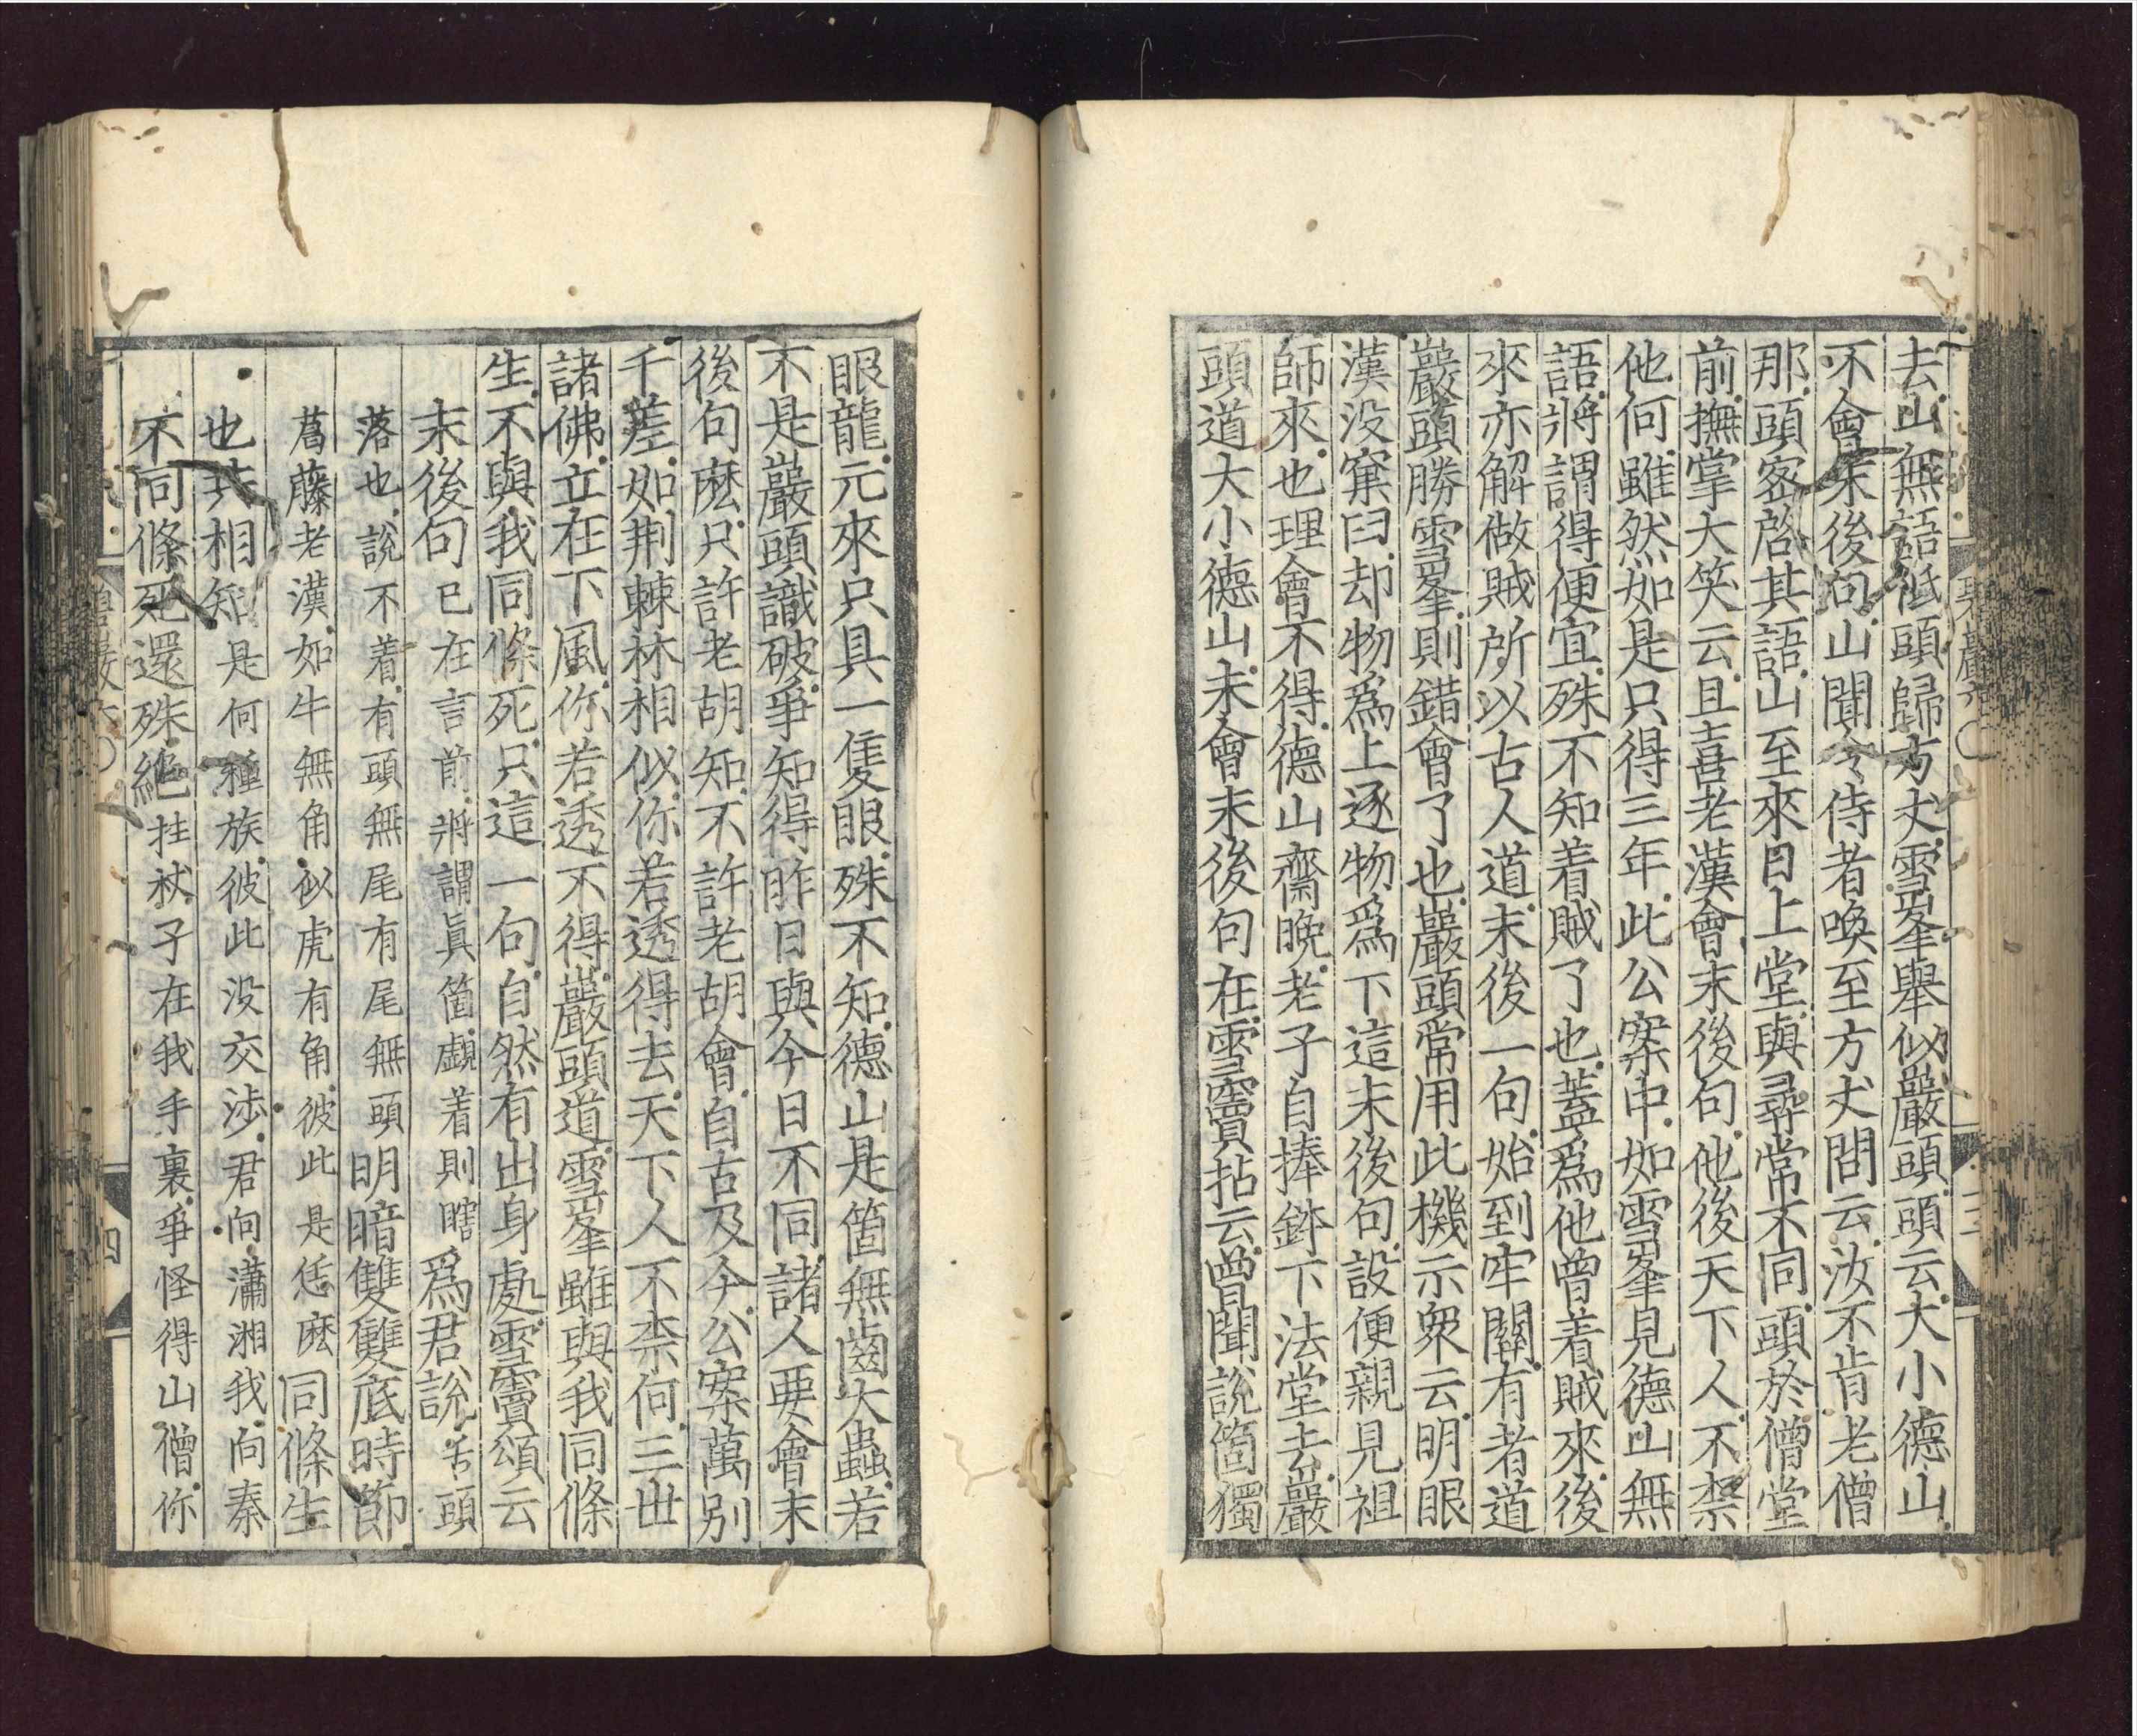 去山無語低頭歸方丈雪峯舉似巖頭頭云大小德山
不會末後句山聞令侍者喚至方丈問云汝不肯老僧
那頭密啓其語山至來日上堂與尋常不同頭於僧堂
前撫掌大笑云且喜老漢會末後句他後天下人不柰
他何雖然如是只得三年此公案中如雪峯見德山無
語將謂得便宜殊不知着賊了也蓋爲他曾着賊來後
來亦解做賊所以古人道末後一句始到牢關有者道
巖頭勝雪峯則錯會了也巖頭常用此機示衆云明眼
漢没窠臼却物爲上逐物爲下這末後句設便親見祖
師來也理會不得德山齋晩老子自捧鉢下法堂去巖
頭道大小德山未會末後句在雪竇拈云曾聞說箇獨
眼龍元來只具一隻眼殊不知德山是箇無齒大蟲若
不是巖頭識破爭知得昨日與今日不同諸人要會末
後句麽只許老胡知不許老胡會自古及今公案萬別
千差如荆棘林相似你若透得去天下人不柰何三世
諸佛立在下風你若透不得巖頭道雪峯雖與我同條
生不與我同條死只這一句自然有出身處雪竇頌云
末後句已在言前將謂眞箇覰着則瞎爲君說舌頭
落也說不着有頭無尾有尾無頭明暗雙雙底時節
葛藤老漢如牛無角似虎有角彼此是恁麽同條生
也共相知是何種族彼此没交涉君向瀟湘我向秦
不同條死還殊絶拄杖子在我手裏爭怪得山僧你